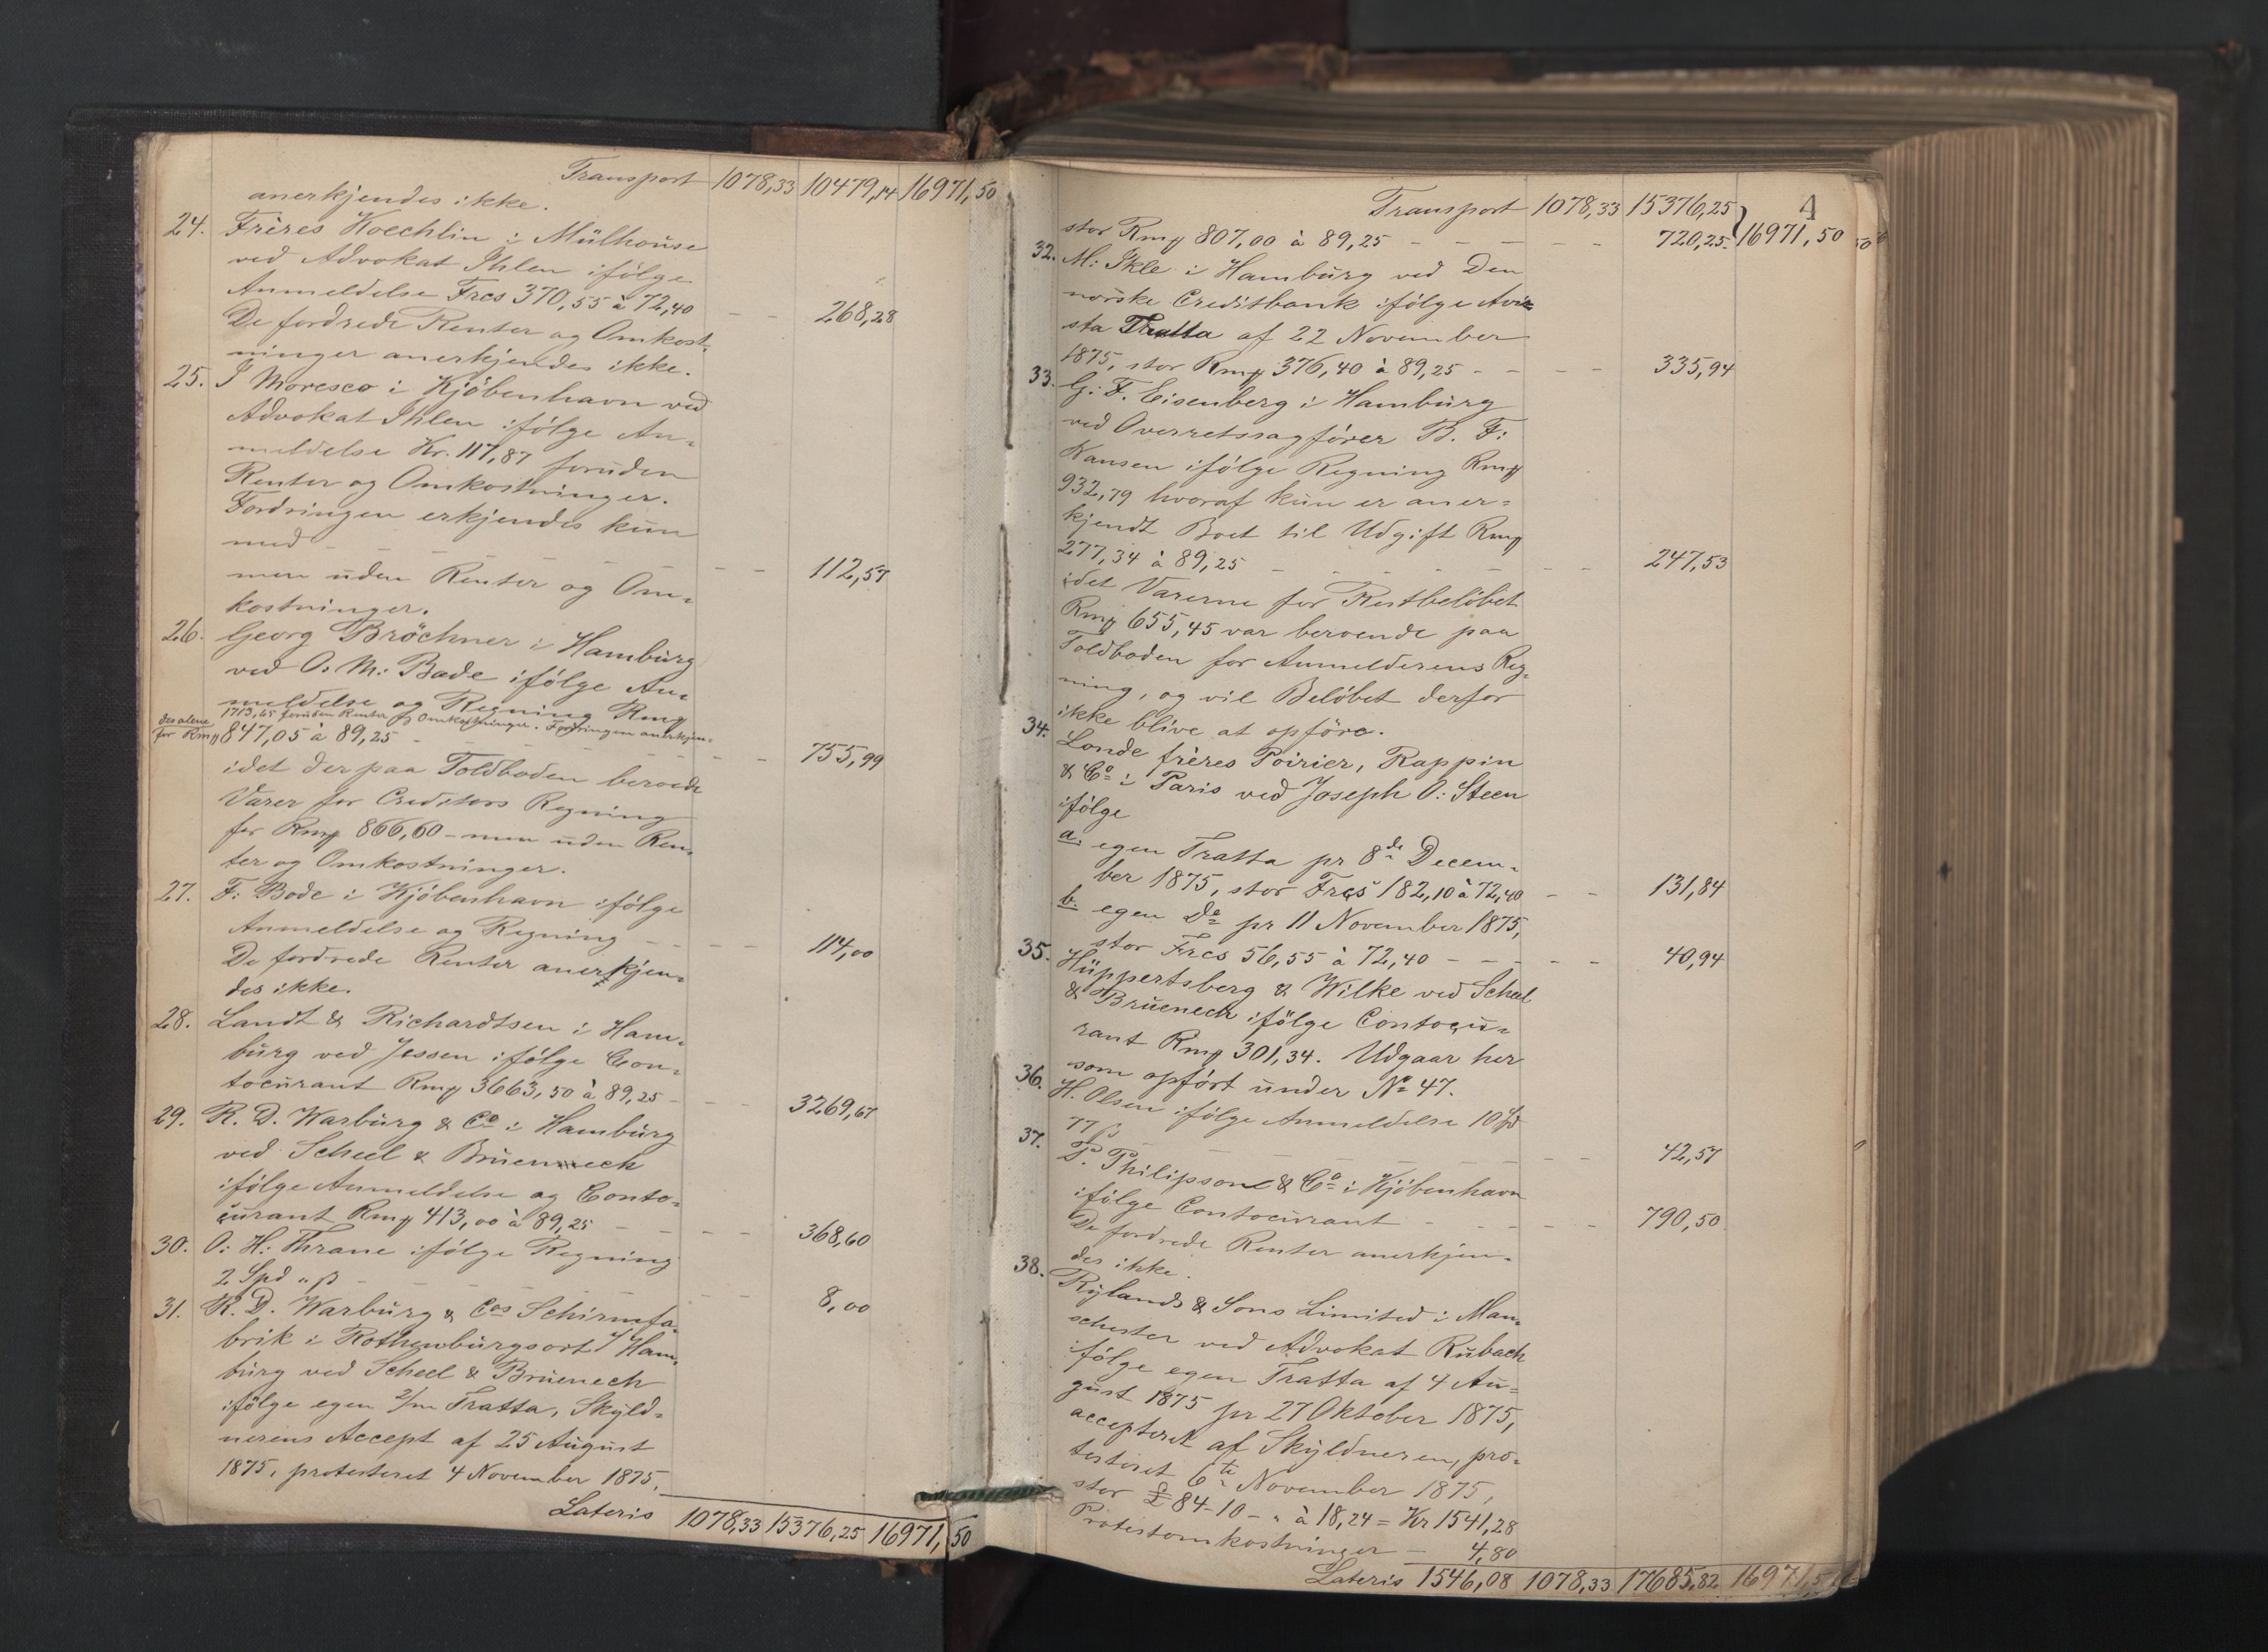 Transport 1078,33 10479,14 16971,50
anerkjendes ikke.
24. Frères Koechlin i Mülhouse
ved Advokat Ihlen ifølge
Anmeldelse Frcs 370,55 à 72,40 - - 268,28
De fordrede Renter og Omkost-
ninger anerkjendes ikke.
25. I Moresco i Kjöbenhavn ved
Advokat Ihlen ifölge An-
meldelse Kr. 117,87 foruden
Renter og Omkostninger.
Fordringen erkjendes kun
med - - - - - - 112,57
men uden Renter og Om-
kostninger.
26. Georg Bröchner i Hamburg
ved O. M: Bade ifölge An-
meldelse og Regning Rmk
1713,65 foruden Renter og Omkostninger. Fordringen anerkjen-
des alene
for Rmk 847,05 à 89,25 - - - 755,99
idet der paa Toldboden beroede
Varer for Creditors Regning
for Rmk 866,60 - men uden Ren-
ter og Omkostninger.
27. F. Bode i Kjöbenhavn ifölge
Anmeldelse og Regning - - - 114,00
De fordrede Renter anerkjen-
des ikke.
28. Landt & Richardtsen i Ham-
burg ved Jessen ifölge Con-
tocurant Rmk 3663,50 à 89,25 - - - 3269,67
29. R. D. Warburg & Co i Hamburg
ved Scheel & Bruenech
ifölge Anmeldelse og Conto-
curant Rmk 413,00 à 89,25 - - - 368,60
30. O: H: Thrane ifölge Regning
2 Spd " ß - - - - - 8,00
31. R. D. Warburg & Cos Schirmfa-
brik i Rothenburgsort / Ham-
burg ved Scheel & Bruenech
ifölge egen 2/m Tratta, Skyld-
nerens Accept af 25 August
1875, protesteret 4 November 1875,
Lateris 1078,33 15376,25 16971,50
4
Transport 1078,33 15376,25
stor Rmk 807,00 à 89,25 - - - - - 720,25 16971,50
32. M: Ikle i Hamburg ved Den
norske Creditbank ifölge Avi-
sta Tratta af 22 November
1875, stor Rmk 376,40 à 89,25 - - - 335,94
33. G. F. Eisenberg i Hamburg
ved Overretssagförer B. F:
Hansen ifölge Regning Rmk
932,79 hvoraf kun er aner-
kjendt Boet til Udgift Rmk
277,34 à 89,25 - - - - - 247,53
idet Varerne for Restbelöbet
Rmk 655,45 var beroende paa
Toldboden for Anmelderens Reg-
ning, og vil Belöbet derfor
ikke blive at opföre.
34. Londe frères Poirier, Rappin
& Co i Paris ved Joseph O: Steen
ifölge
a. egen Tratta pr 8de Decem-
ber 1875, stor Frcs 182,10 à 72,40 - - 131,84
b. egen Do pr 11 November 1875,
stor Frcs 56,55 à 72,40 - - - - 40,94
35. Hüppertsberg & Wilke ved Scheel
& Bruenech ifölge Contocu-
rant Rmk 301,34. Udgaar her
som opfört under No 47.
36. H. Olsen ifölge Anmeldelse 10 Spd
77 ß - - - - - - 42,57
37. P. Philipson & Co i Kjöbenhavn
ifölge Contocurant - - - - - 790,50
De fordrede Renter anerkjen-
des ikke.
38. Rylands & Sons Limited i Man-
chester ved Advokat Rubach
ifölge egen Tratta af 4 Au-
gust 1875 pr 27 Oktober 1875,
accepteret af Skyldneren, pro-
testeret 6te November 1875,
stor £ 84-10-" à 18,24 = Kr 1541,28
Protestomkostninger - 4,80
Lateris 1546,08 1078,33 17685,82 16971,50